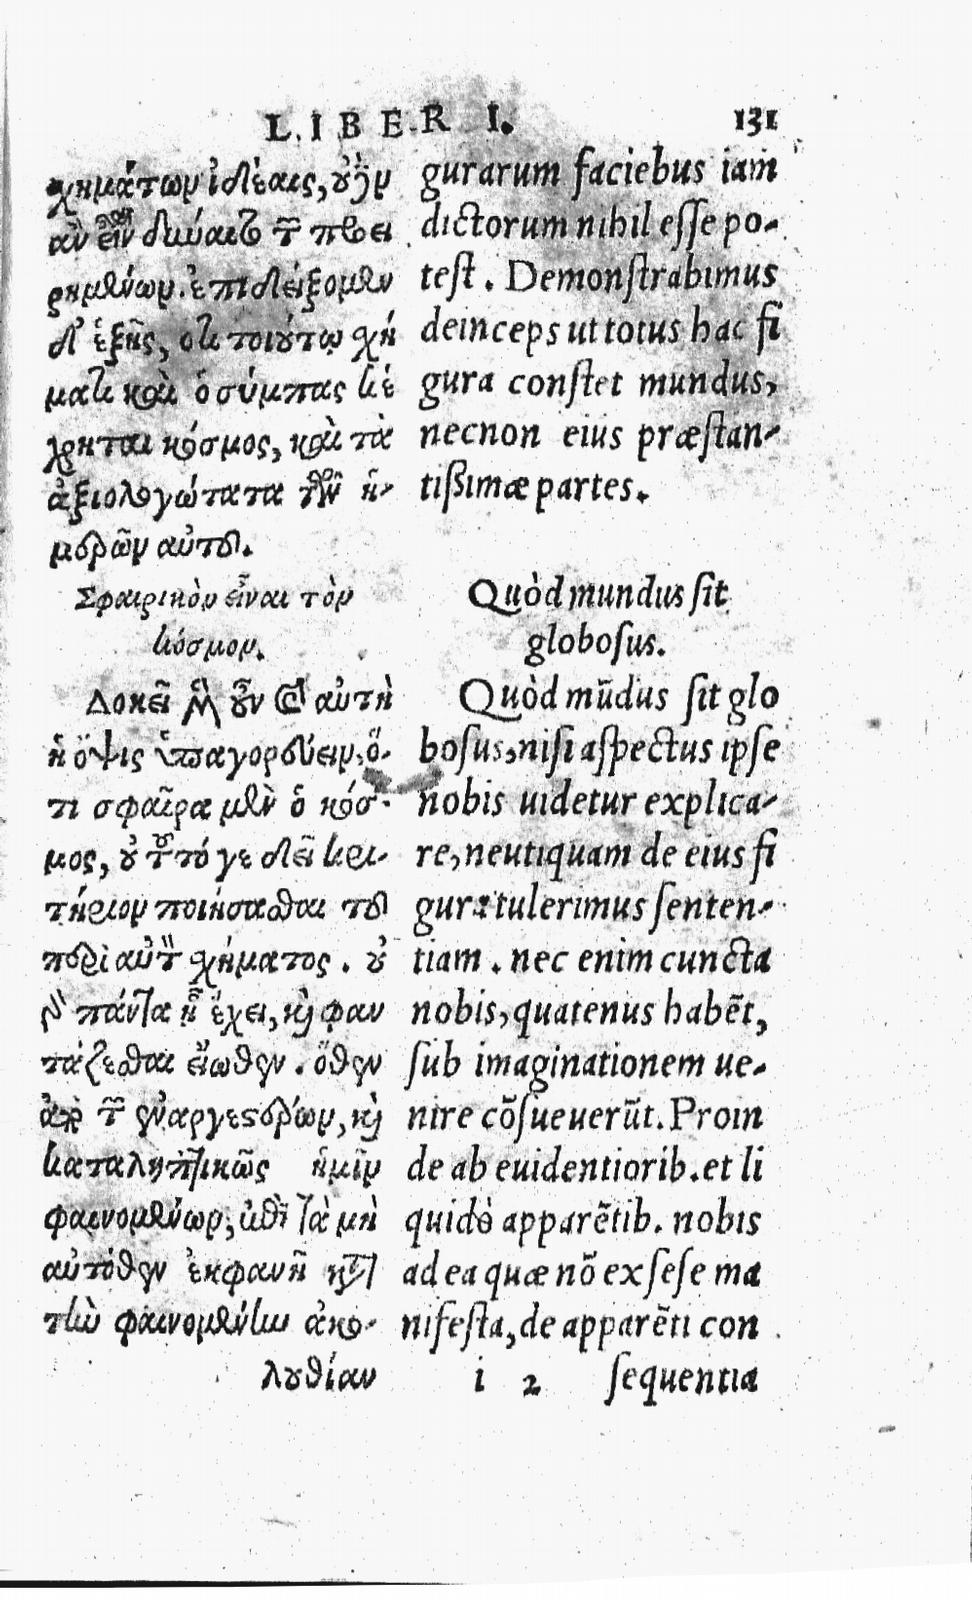 LIBER I. 131
χημάτων ἰδέαις, οὐδὲν
ἂν εἶναι δύναιτο τῶν προει
ρημένων. ἐπιδείξομεν
δ' ἑξῆς, ὅτι τοιούτῳ χή
ματι καὶ ὁ σύμπας κέ
χρηται κόσμος, καὶ τὰ
ἀξιολογώτατα τῶν ἡ-
μερῶν αὐτοῦ.
Σφαιρικὸν εἶναι τὸν
κόσμον.
Δοκεῖ μὲν οὖν καὶ αὐτὴ
ἡ ὄψις ὑπαγορεύειν, ὅ-
τι σφαῖρα μὲν ὁ κόσ-
μος, οὐ τοῦτό γε δεῖ κρι-
τήριον ποιήσασθαι τοῦ
περὶ αὐτὸν χήματος. οὐ
γὰρ πάντα ἡ ἔχει, καὶ φαν
τάζεσθαι εἴωθεν. ὅθεν
ἀπὸ τῶν ἐναργεστέρων, καὶ
καταληπτικῶς ἡμῖν
φαινομένων, ἐπὶ τὰ μὴ
αὐτόθεν ἐκφανῆ κατὰ
τὴν φαινομένην ἀκο-
λουθίαν
gurarum faciebus iam
dictorum nihil esse po-
test. Demonstrabimus
deinceps ut totus hac fi
gura constet mundus,
necnon eius præstan-
tissimæ partes.
Quòd mundus sit
globosus.
Quòd mūdus sit glo
bosus, nisi aspectus ipse
nobis uidetur explica-
re, neutiquam de eius fi
gura tulerimus senten-
tiam. nec enim cuncta
nobis, quatenus habēt,
sub imaginationem ue-
nire cōsueuerūt. Proin
de ab euidentiorib. et li
quidò apparētib. nobis
ad ea quæ nō ex sese ma
nifesta, de apparēti con
i 2 sequentia